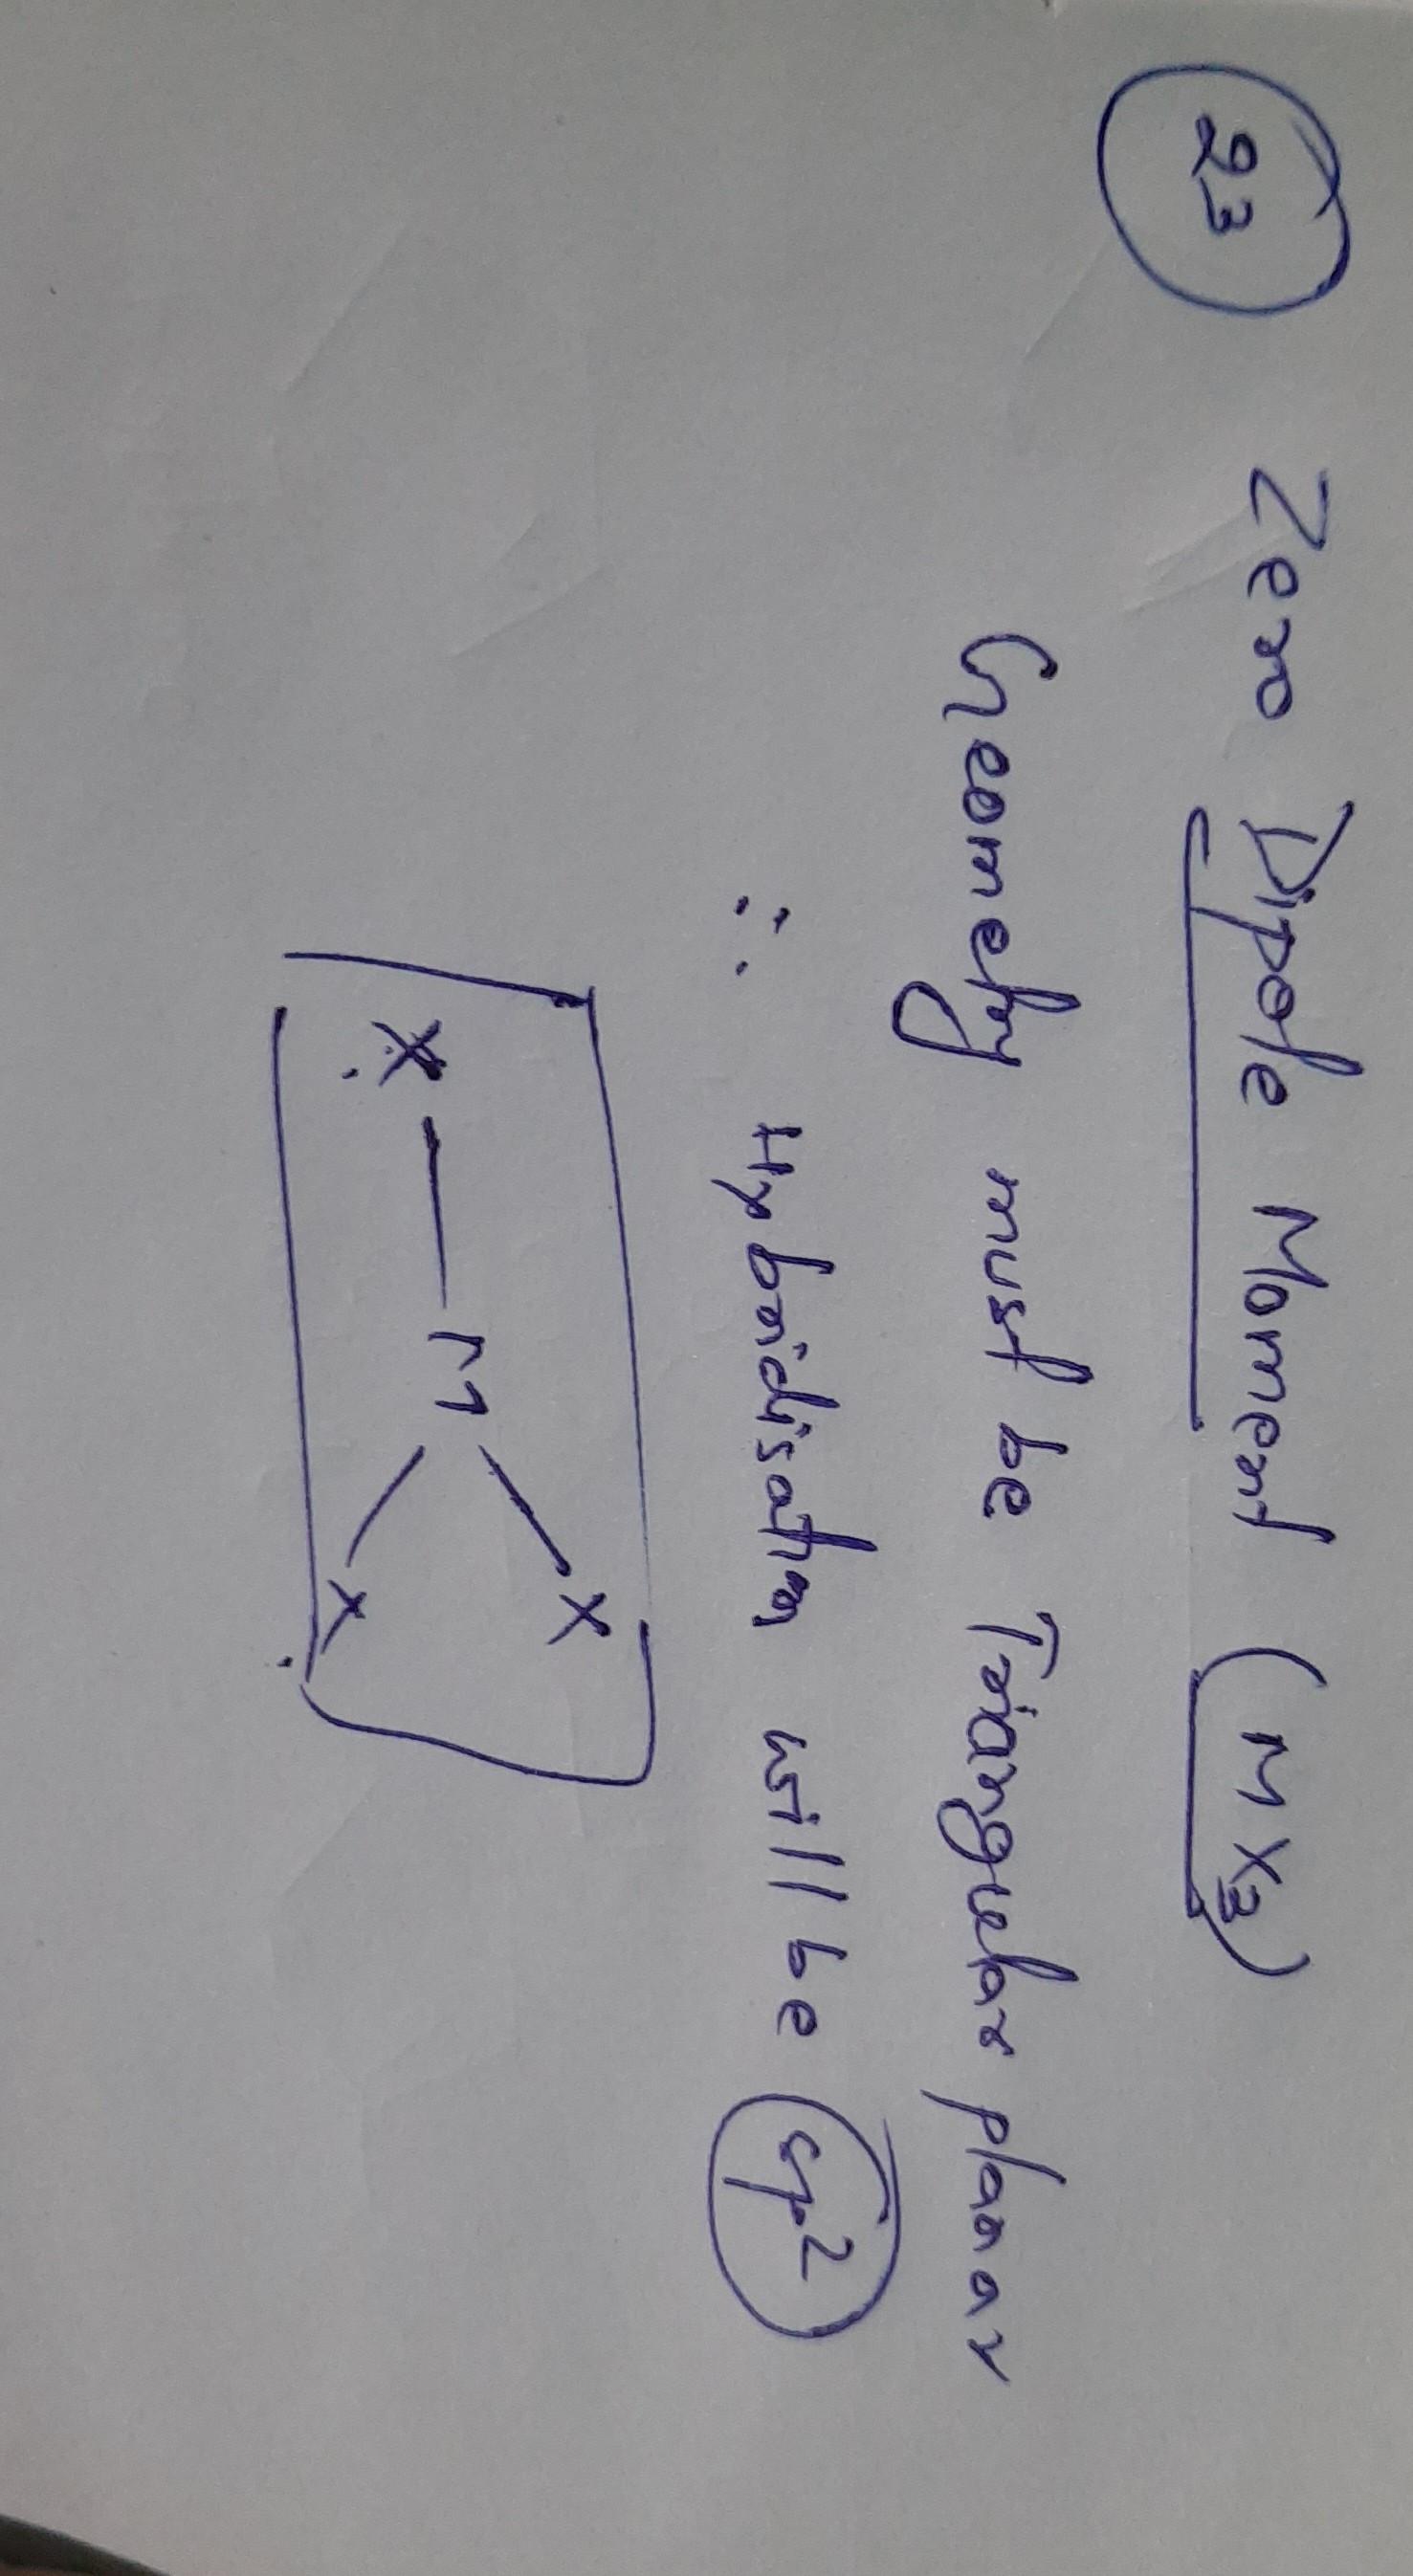 23 Zero Dipole Moment (MX₃)
Geometry must be Triangular planar
∴ Hybridisation will be sp²
X
X — M
X